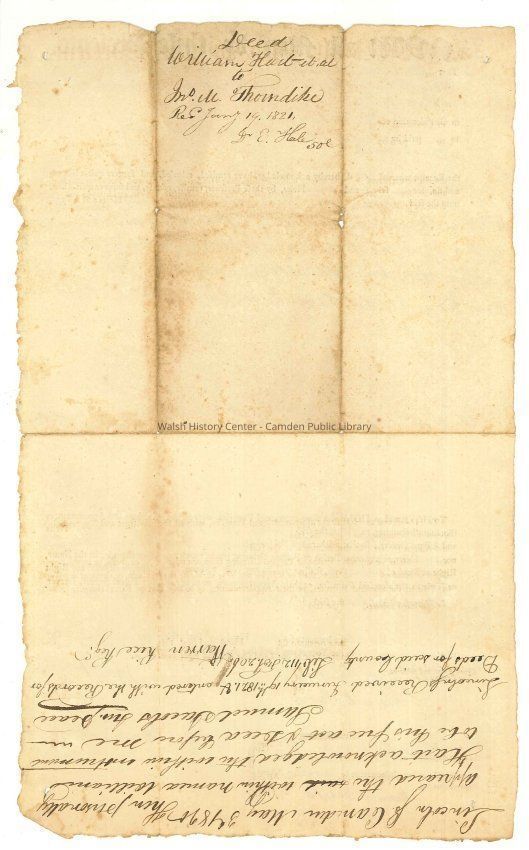 Deed
William Hart et al
to
Jno. M. Thorndike
Recd Jany 19. 1821.
Fr E. Hale
50c
Walsh History Center - Camden Public Library
Lincoln Ss Camden May 3d Then personally
appeared the said within named William
Hart acknowledged the within instrument
to be his free act & deed before me
Samuel Jacobs Jus peace
Lincoln Ss Received January 19th 1821 & entered with the Records for
Deeds for said County Lib 112 Fol 206
Warren Rice Reg.